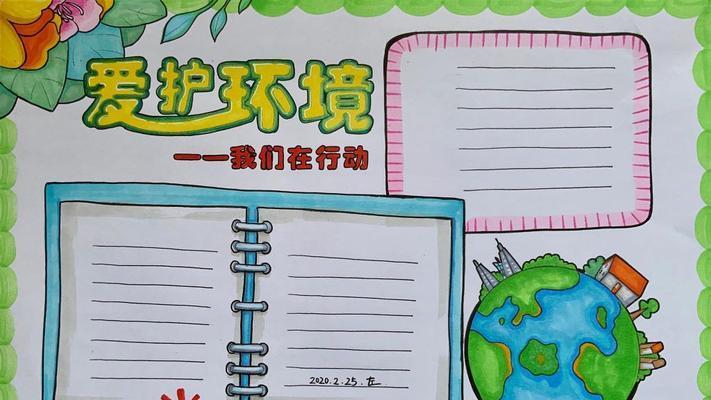 爱护环境
——我们在行动
2020.2.25.左